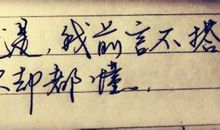 漫，我前言不搭
却都懂。